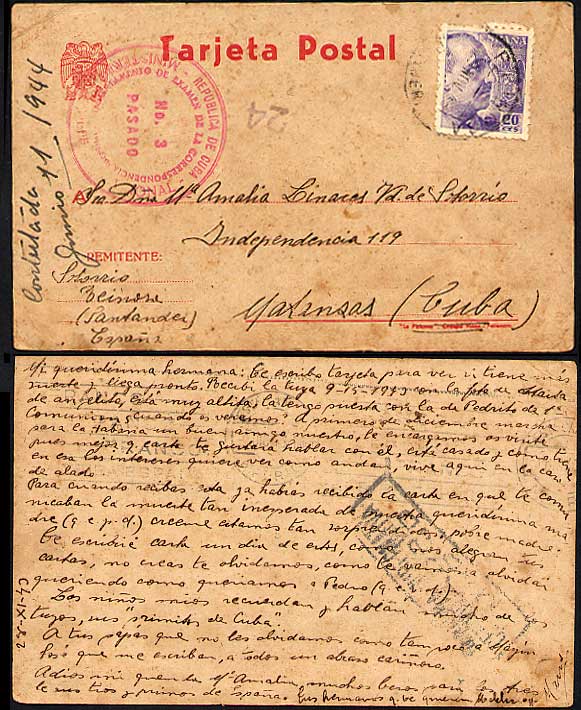 Tarjeta Postal
ESPAÑA
20
CTS
REPUBLICA DE CUBA
DE EXAMEN DE LA CORRESPONDENCIA
No. 3
PASADO
24
Contestada
Junio 11 - 1944
A Sra Dña Mª Amalia Linares Vd. de Sotorrio
Independencia 119
Matanzas (Cuba)
REMITENTE:
Sotorrio
Reinosa
(Santander)
España
Mi queridísima hermana: Te escribo tarjeta para ver si tiene más
suerte y llega pronto. Recibí la tuya 9-15-1943 con la fta de
de angelito, está muy altita, la tengo puesta con la de Pedrito de 1ª
Comunion ¿cuando os veremos? A primeros de diciembre marcha
para la Habana un buen amigo nuestro, le encargamos os visite
pues mejor q carta te gustará hablar con él, está casado y como tiene
en esa los intereses quiere ver como andan, vive aquí en la casa
de alado.
Para cuando recibas esta ya habrás recibido la carta en que te comu
nicaban la muerte tan inesperada de nuestra queridísima ma
dre (q e p. d.) creeme estamos tan sorprendidos, pobre madre!
Te escribiré carta un dia de estos, como nos alegran tus
cartas, no creas te olvidamos, como te vamos a olvidar
queriendo como queríamos a Pedro (q. e. p. d.)
Los niños mios recuerdan y hablan mucho de los
tuyos, sus "primitos de Cuba".
A tus papas que no les olvidamos como tampoco a
José que me escriban, a todos un abrazo cariñoso.
Adios mi querida Mª Amalia, muchos besos para los tres
de sus tios y primos de España. tus hermanos q. te quieren
28-XI-43